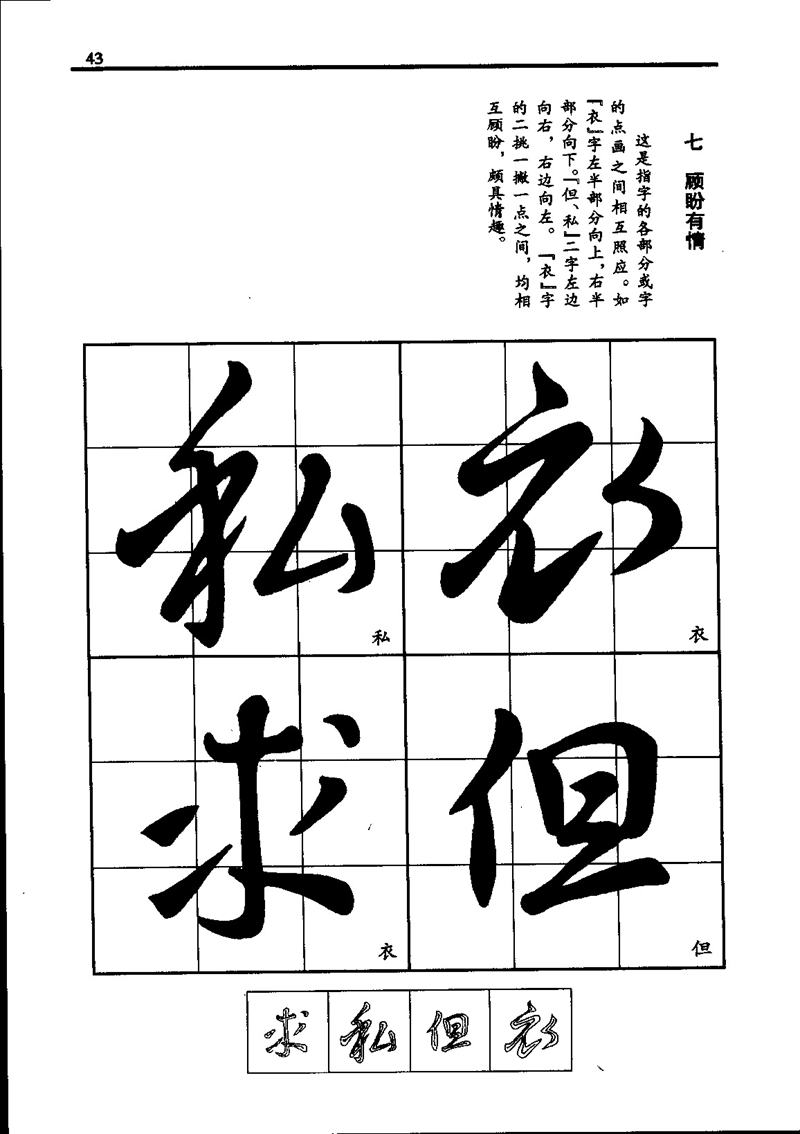 43
七　顾盼有情
这是指字的各部分或字
的点画之间相互照应。如
『衣』字左半部分向上，右半
部分向下。『但、私』二字左边
向右，右边向左。『衣』字
的二挑一撇一点之间，均相
互顾盼，颇具情趣。
衣
衣
私
私
但
但
求
衣
求
私
但
衣